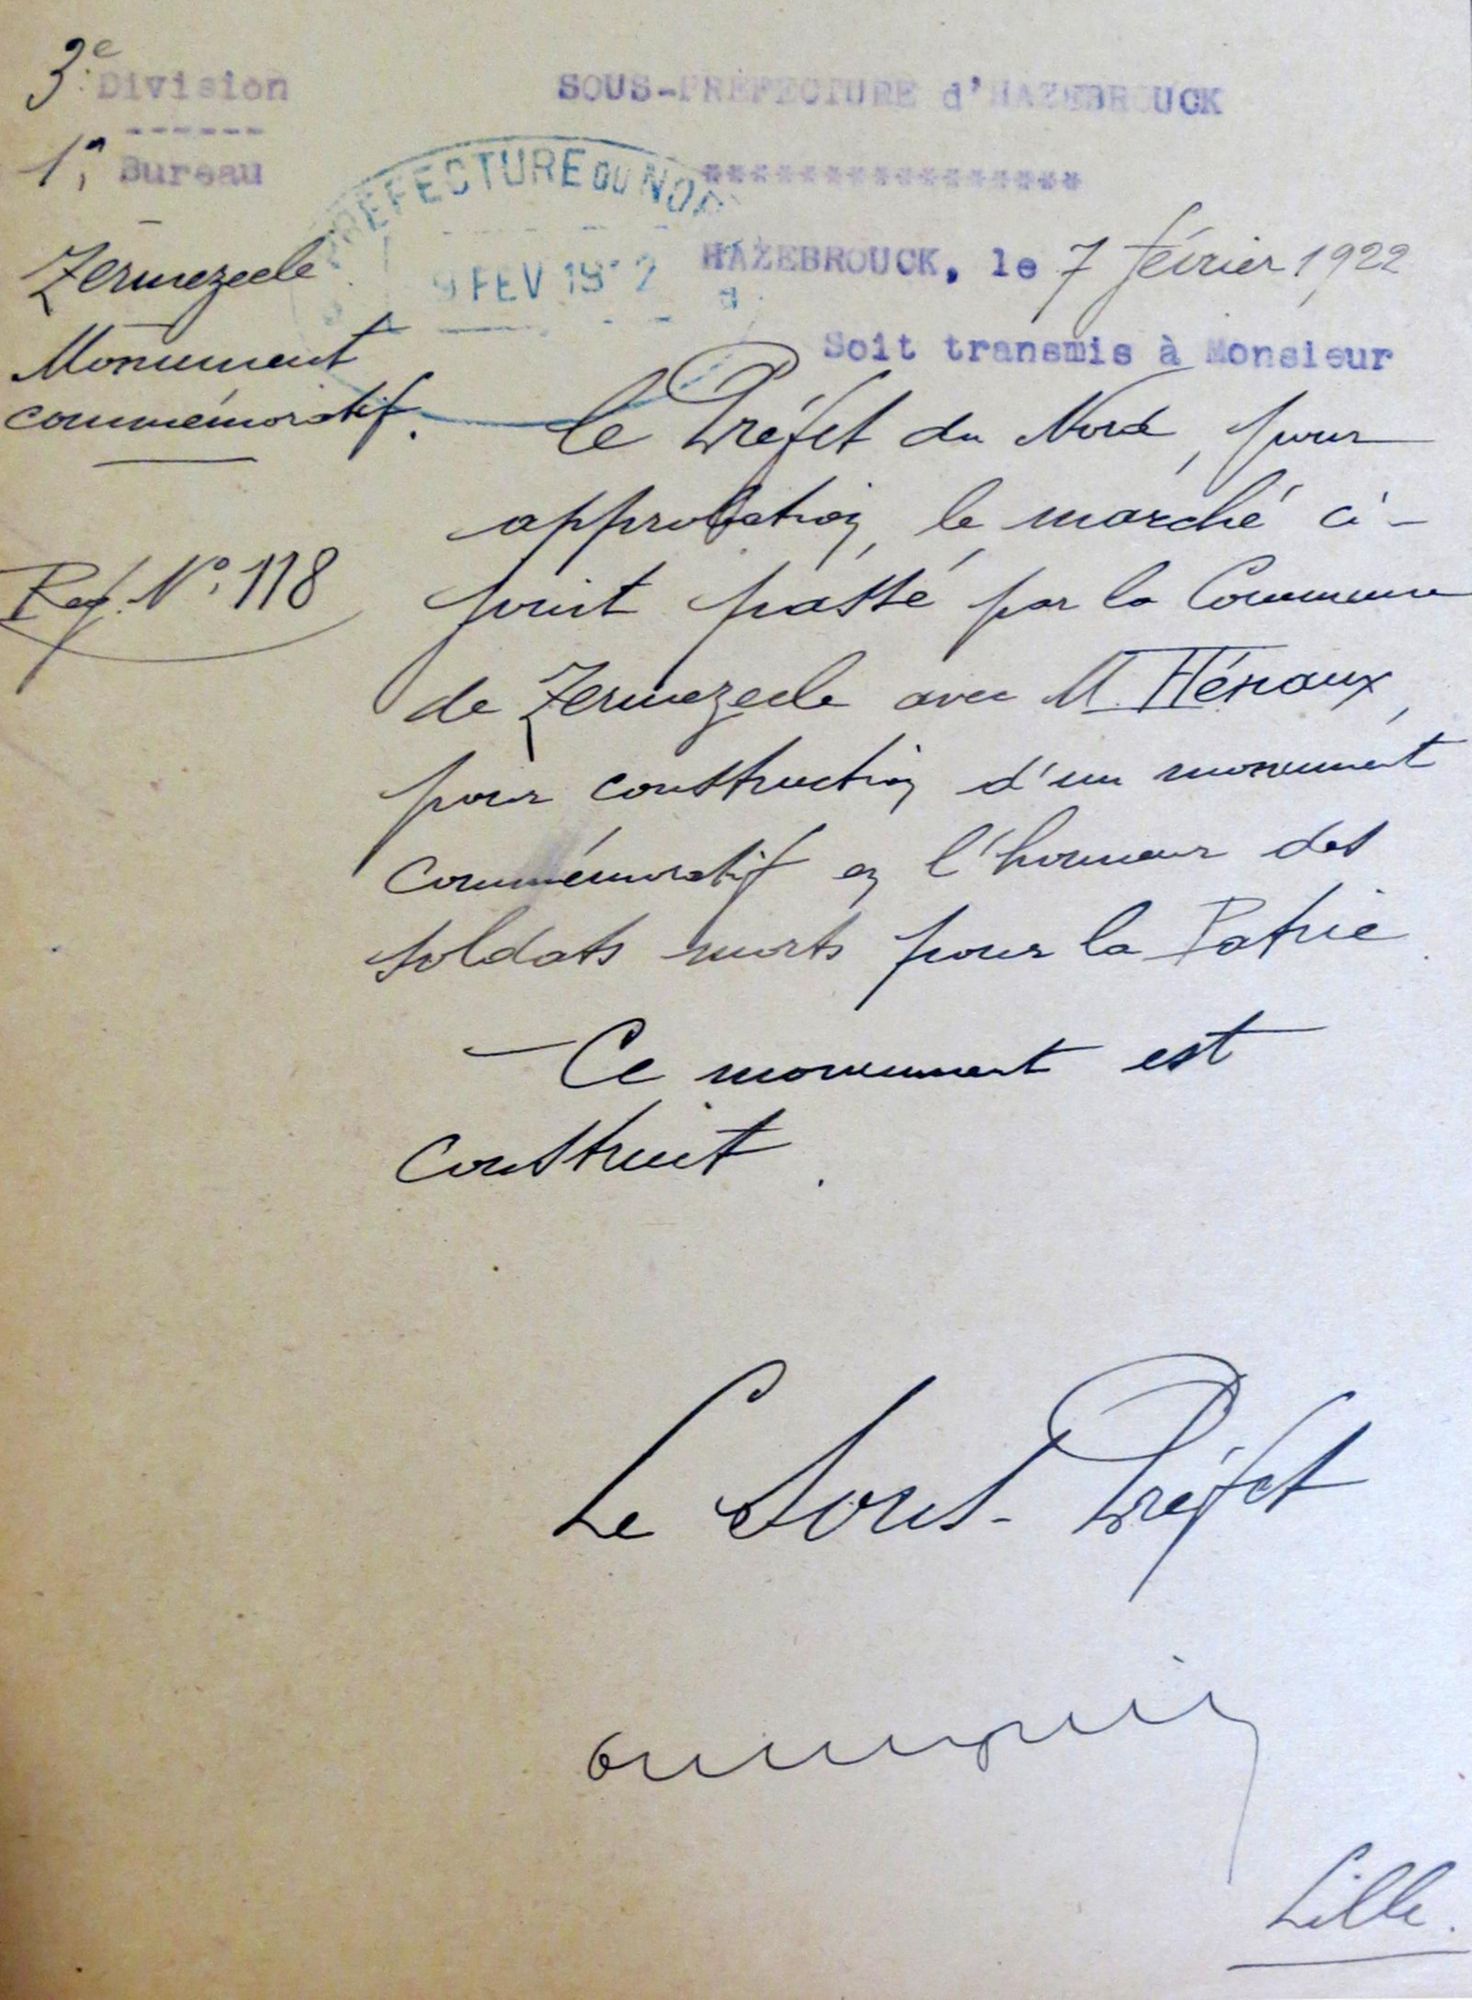 3e Division
------
1er Bureau
Zermezeele
Monument
commémoratif.
Reg. N°. 118
SOUS-PREFECTURE d'HAZEBROUCK
*****************
PREFECTURE DU NORD
9 FEV 1922
HAZEBROUCK, le 7 février 1922
Soit transmis à Monsieur
le Préfet du Nord, pour
approbation, le marché ci-
joint passé par la Commune
de Zermezeele avec M. Hénaux,
pour construction d'un monument
commémoratif en l'honneur des
soldats morts pour la Patrie.
— Ce monument est
construit.
Le Sous-Préfet
Lille.